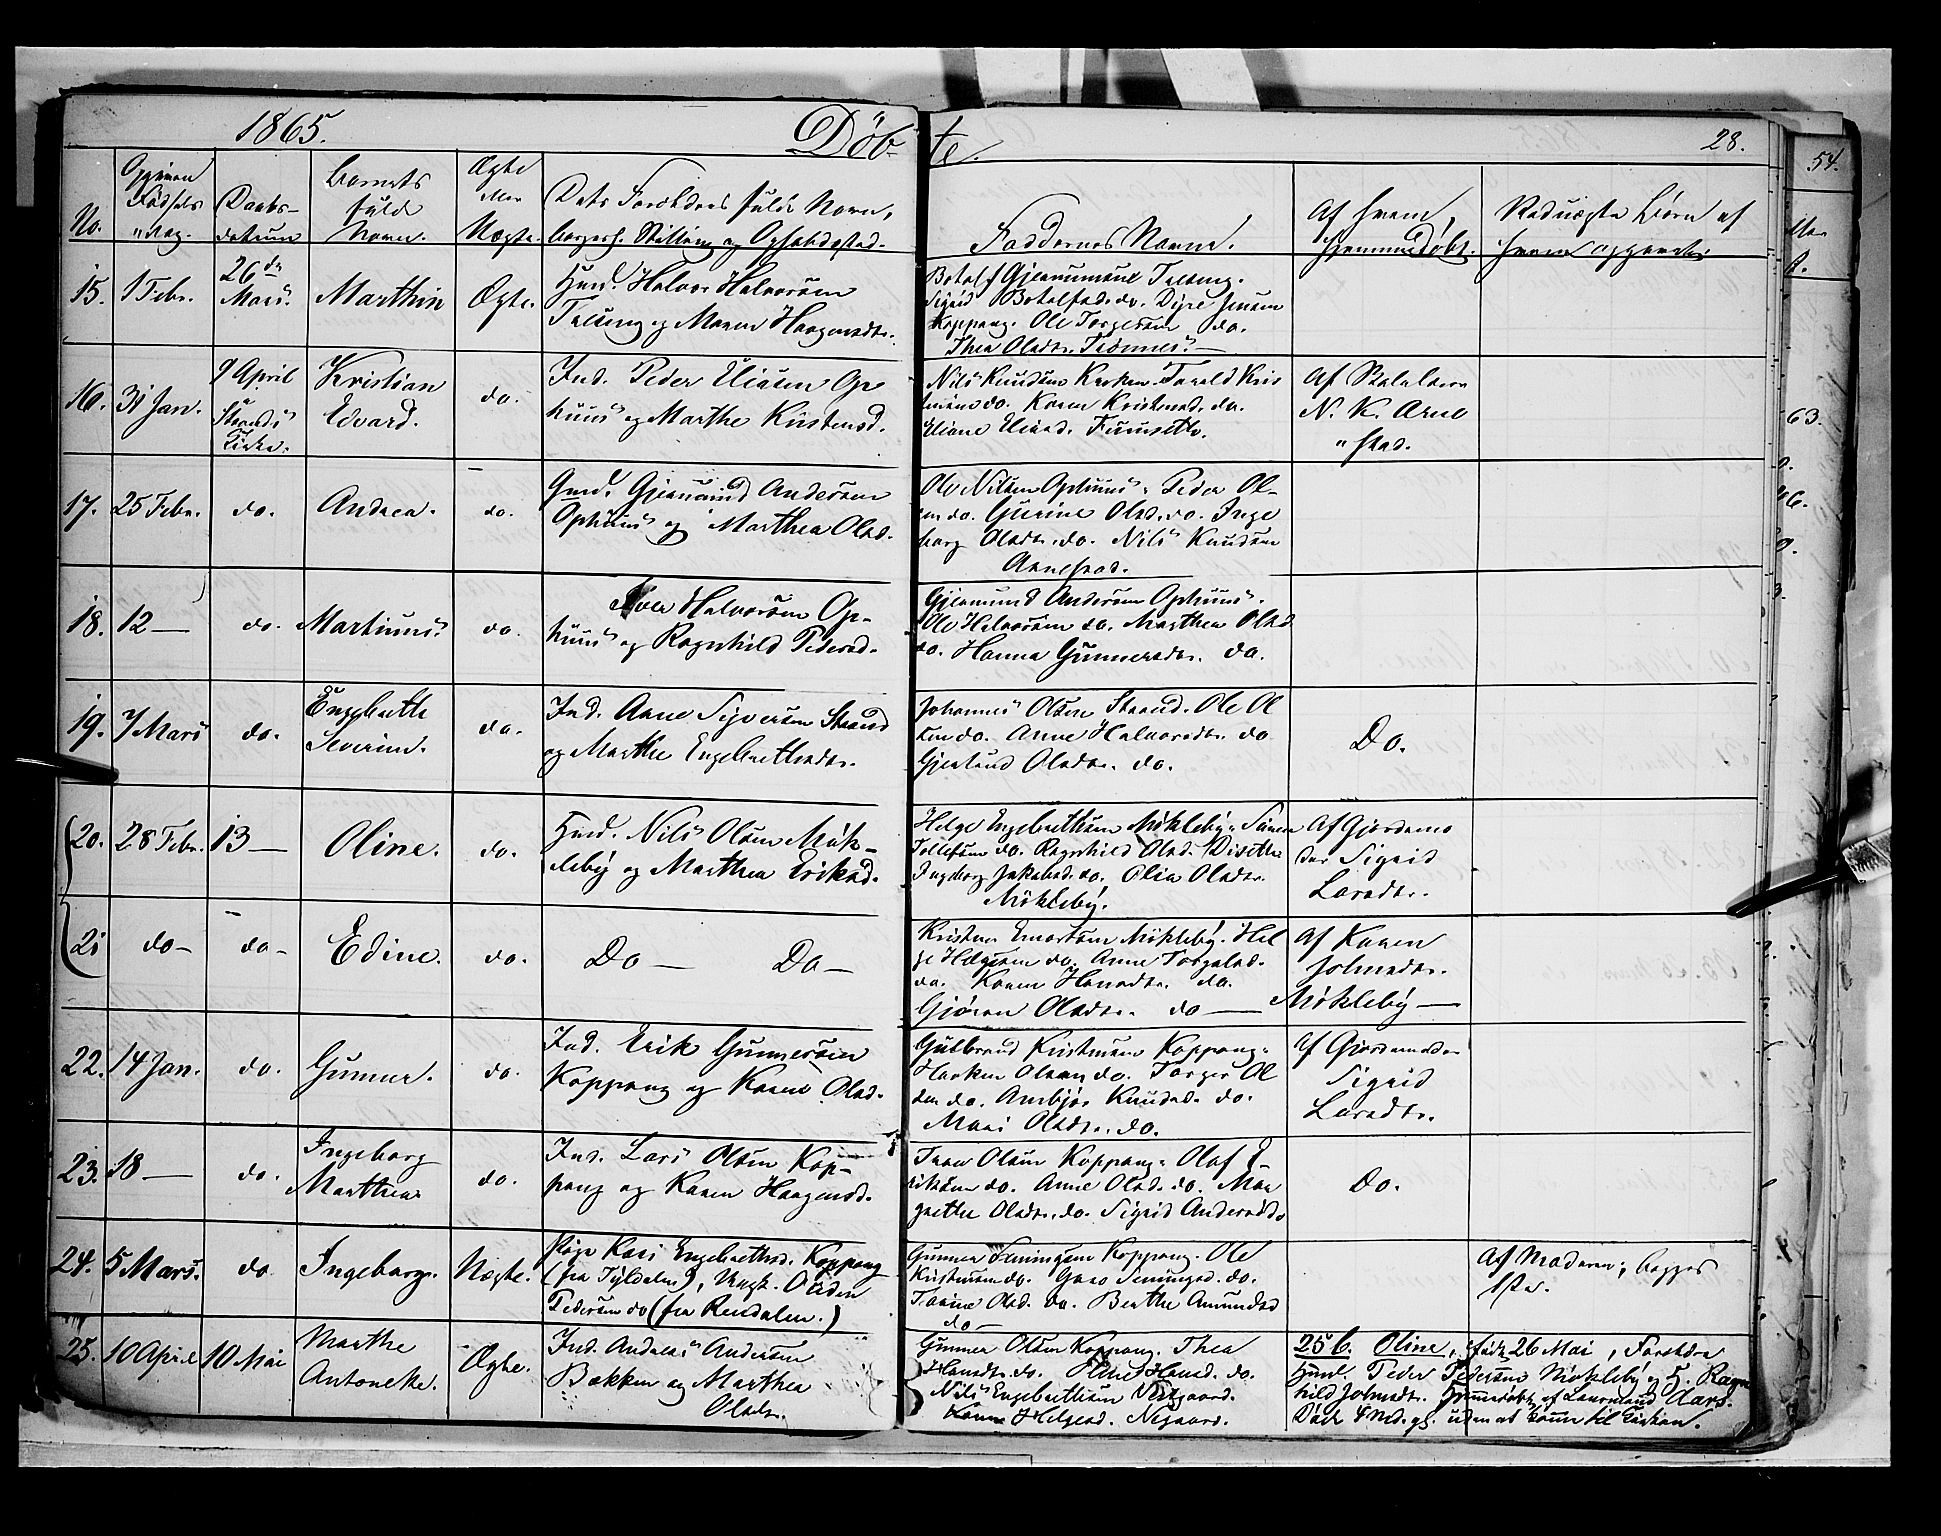 1865.
Döb-
te.
28.
54.
No.
Opgiven
Fødsels
"dag.
Daabs-
datum
Barnets
fulde
Navn.
Ægte
eller
Uægte.
Dets Forældres fulde Navn,
borgerl. Stilling og Opholdssted.
Faddernes Navne.
Af hvem
hjemmedøbt.
Uægte Børn af
hvem opgivet
15. 1 Febr.
26de
Mars.
Marthin
Ægte.
Huusm. Halvor Halvorsøn
og Maren Haagensdtr.
Botolf Gjermunsøn
Sigrid Botolfsd. do.
Koppang. Ole Torgersøn do.
Thea Olsdtr.
16. 31 Jan.
9 April
Strands
Kirke.
Kristian
Edvard.
do.
Ind. Peder Eliasøn Op
huus og Marthe Kristensd.
Nils Knudsøn
do. Karen Kristensd. do.
Eliane Eliasd. Furusette.
Af Skolelærer
N. K. Arne
"stad.
17. 25 Febr. do. Andrea. do.
Gmd. Gjermund Andersøn
Ophuus og Marthea Olsd.
Ole Nilsøn Ophuus. Peder Ol-
søn do. Gurine Olsd. do. Inge
borg Olsdtr. do. Nils Knudsøn
Arnestad.
18. 12 — do. Martinus. do.
Halvorsøn Op-
huus og Ragnhild Pedersd.
Gjermund Andersøn Ophuus.
Ole Halvorsøn do. Marthea Olsd
do. Hanna Gunnersdtr. do.
19. 7 Mars do.
Engebrethe
Severine.
do.
Ind. Arne Syversøn Strand
og Marthe Engebrethsdtr.
Johannes Olsøn Strand. Ole Ol
søn do. Anne Halvorsdtr. do
Gjertrud Olsdtr. do.
Do.
20. 28 Febr. 13 — Oline. do.
Huusmd. Nils Olsøn Møk-
leby og Marthea Eriksd.
Helge Engebrethsøn Møkleby.
Tollefsøn do. Ragnhild Olsd. Disethe
Ingeborg Jakobsd. do. Olia Olsdtr.
Møkleby.
Af Gjordemo
der Sigrid
Larsdtr.
21 do — do — Edine. do.
Do — Do —
Kristen Emortsøn Møkleby. Hel
ge Helgesøn do. Anne Torgalsd.
do. Karen Hansdtr. do.
Gjøran Olsdtr. do —
Af Karen
Johnsdtr.
Møkleby —
22. 14 Jan. do. Gunner. do.
Ind. Erik Gunnersøn
Koppang og Karen Olsd.
Gulbrand Kristensøn Koppang.
Haaken Olsøn do. Torger Ol
søn do. Ambjør Knudsd. do.
Mari Olsdtr. do.
Af Gjordemoder
Sigrid
Larsdtr.
23. 18 — do.
Ingeborg
Marthea
do.
Ind. Lars Olsøn Kop-
pang og Karen Haagensd.
Iver Olsøn Koppang. Olof E-
riksøn do. Anne Olsd. do. Mar
grethe Olsdtr. do. Sigrid Andersd do
Do.
24. 5 Mars. do Ingeborg. Uægte.
Pige Kari Engebrethsd. Koppang
(fra Tyldalen), Ungk. Outen
Pedersøn do (fra Rendalen.)
Gunner Simingsøn Koppang. Ole
Kristensøn do. Goro Simingsd. do.
Torine Olsd. do. Berthe Amundsd
do —
Af Moderen; begges
1ste.
25. 10 April 10 Mai
Marthe
Antonette.
Ægte.
Ind. Andreas Andersøn
Bækken og Marthea
Olsdtr.
Gunner Olsøn Koppang. Thea
Hansdtr. do. Oline Hansd. do.
Nils Engebrethsøn Nergaard.
Karen Helgesd. Negaard.
25 b. Oline, født 26 Mai, Forældre
Huusm. Peder Pedersøn Møkleby og H. Ragn
hild Johnsdtr. Hjemmedøbt af Lensmand Aars.
Død 4 Md. gl. uden at komme til Kirken.